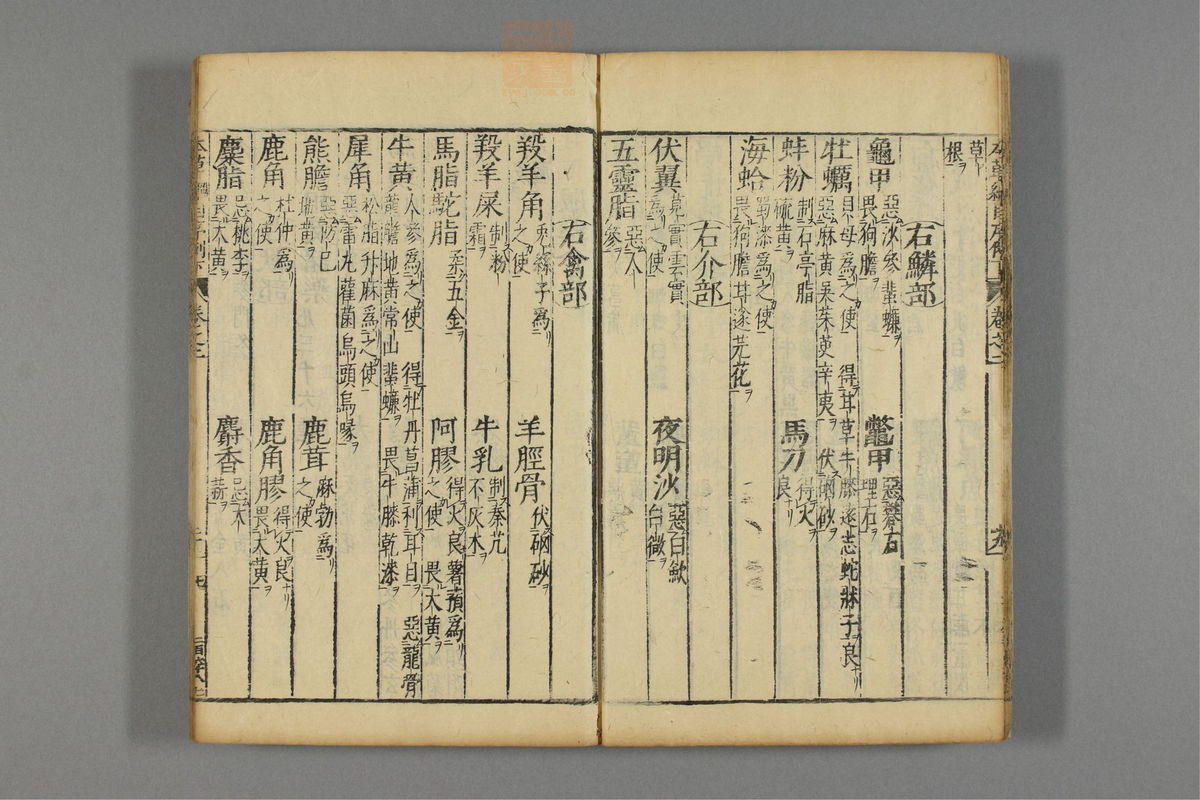 草
根ヲ
右鱗部
龜甲 惡沙參 蜚蠊
畏狗膽
鼈甲 惡礬石
理石
牡蠣 貝母爲之使 得甘草牛膝遠志蛇牀子良
惡麻黄吳茱萸辛夷 伏硇砂
蚌粉 制石亭脂
硫黄
馬刀 得火
良
海蛤 蜀漆爲之使
畏狗膽甘遂芫花
右介部
伏翼 莧實雲實
爲之使
夜明沙 惡白歛
白微
五靈脂 惡人
參
右禽部
羖羊角 兎絲子爲
之使
羊脛骨 伏硇砂
羖羊屎 制粉
霜
牛乳 制秦艽
不灰木
馬脂駝脂 柔五金
阿膠 得火良 薯蕷爲
之使 畏大黄
牛黄 人參爲之使 得牡丹菖蒲利耳目 惡龍骨
龍膽地黄常山蜚蠊 畏牛膝乾漆
犀角 松脂升麻爲之使
惡雷丸雚菌烏頭烏喙
熊膽 惡防已
地黄
鹿茸 麻勃爲
之使
鹿角 杜仲爲
之使
鹿角膠 得火良
畏大黄
麋脂 忌桃李
畏大黄
麝香 忌大
蒜